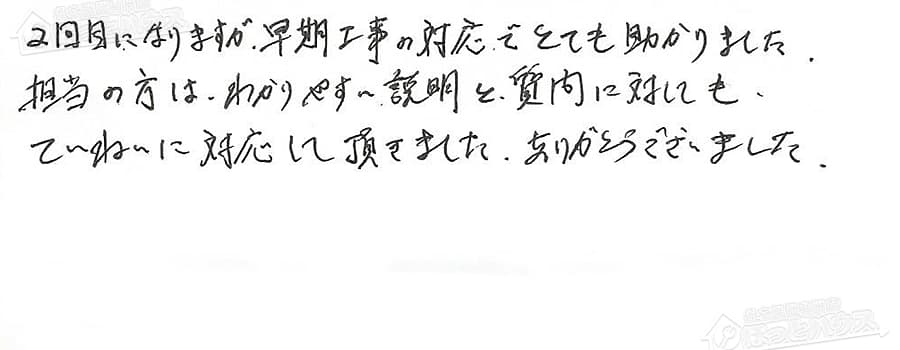 2回目になりますが、早期工事の対応でとても助かりました.
担当の方は、わかりやすい説明と、質内に対しても、
ていねいに対応して頂きました. ありがとうございました.
住設機器専門館
ほっとハウス